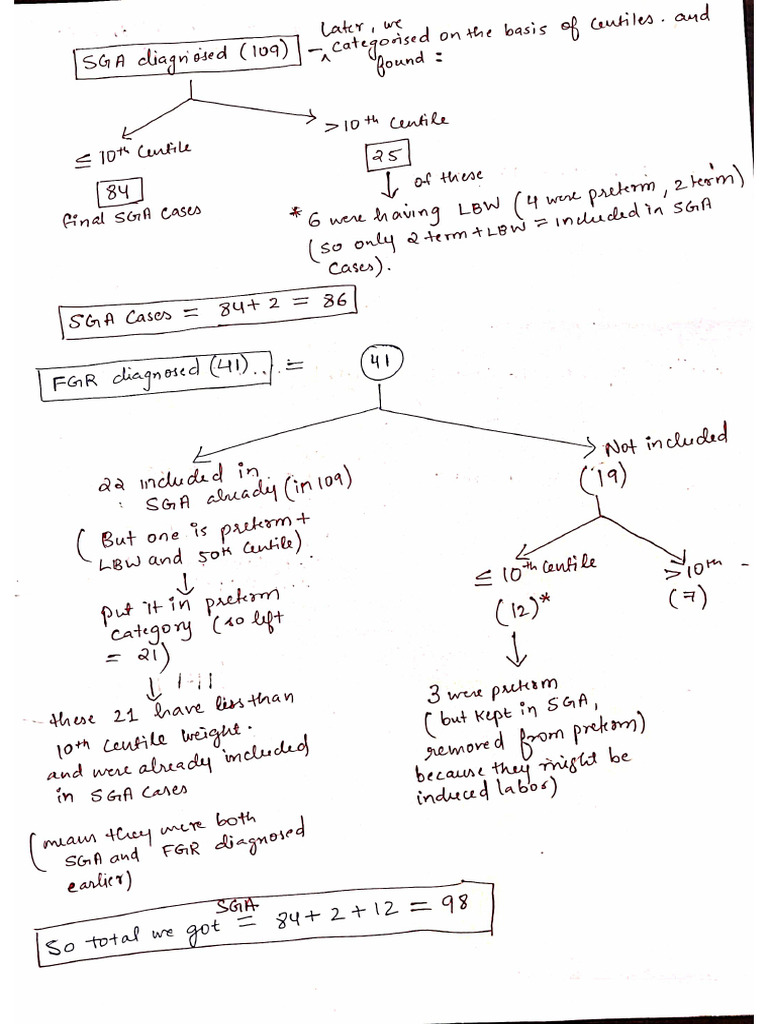 Later, we
SGA diagnosed (109) – categorised on the basis of centiles. and
found :
≤ 10th centile
84
final SGA cases
>10th centile
25
of these
* 6 were having LBW (4 were preterm, 2 term)
(so only 2 term + LBW = included in SGA
cases).
SGA cases = 84+2 = 86
FGR diagnosed (41).. =
41
22 included in
SGA already (in 109)
(But one is preterm +
LBW and 50th centile)
put it in preterm
category (so left
= 21)
these 21 have less than
10th centile weight.
and were already included
in SGA cases
(means they were both
SGA and FGR diagnosed
earlier)
Not included
(19)
≤ 10th centile
(12)*
>10th
(7)
3 were preterm
(but kept in SGA,
removed from preterm)
because they might be
induced labor)
SGA
So total we got = 84+2+12 = 98